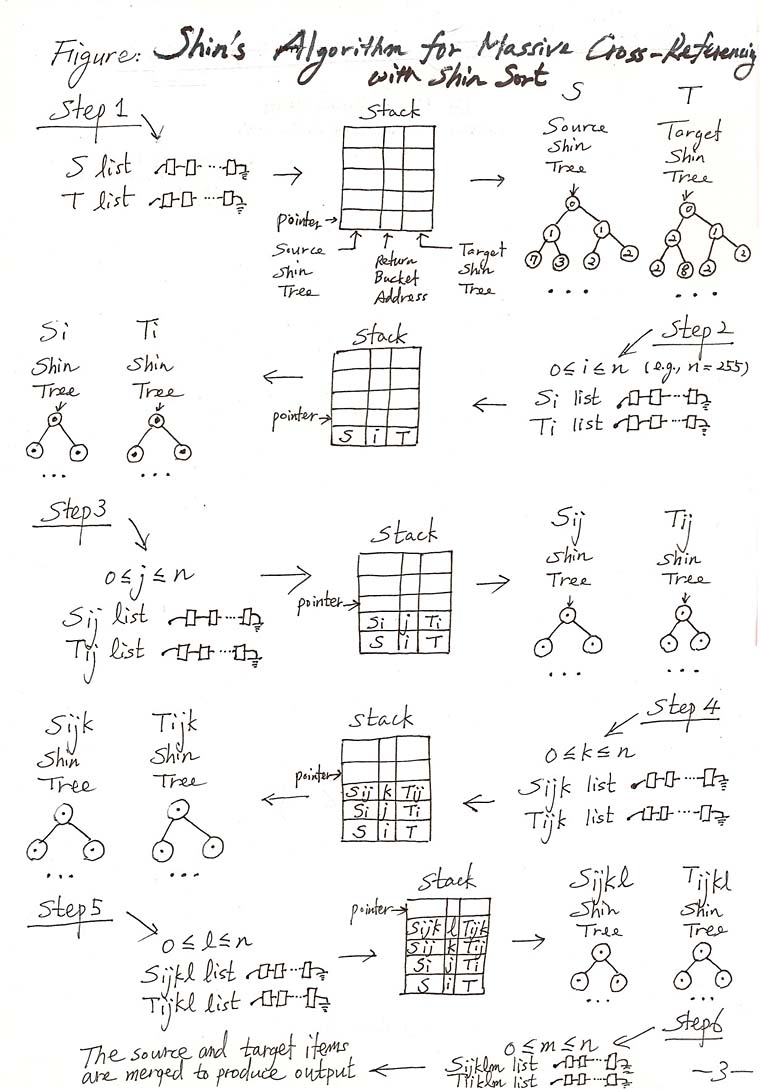 Figure: Shin's Algorithm for Massive Cross-Referencing
with Shin Sort
Step 1
S list
T list
Stack
pointer
Source
Shin
Tree
Return
Bucket
Address
Target
Shin
Tree
S
Source
Shin
Tree
0
1 1
7 3 2 2
...
T
Target
Shin
Tree
0
2 1
2 8 2 2
...
Step 2
0 ≤ i ≤ n (e.g., n = 255)
Si list
Ti list
Stack
pointer
S i T
Si
Shin
Tree
...
Ti
Shin
Tree
...
Step 3
0 ≤ j ≤ n
Sij list
Tij list
Stack
pointer
Si j Ti
S i T
Sij
Shin
Tree
...
Tij
Shin
Tree
...
Step 4
0 ≤ k ≤ n
Sijk list
Tijk list
Stack
pointer
Sij k Tij
Si j Ti
S i T
Sijk
Shin
Tree
...
Tijk
Shin
Tree
...
Step 5
0 ≤ l ≤ n
Sijkl list
Tijkl list
Stack
pointer
Sijk l Tijk
Sij k Tij
Si j Ti
S i T
Sijkl
Shin
Tree
...
Tijkl
Shin
Tree
...
Step 6
0 ≤ m ≤ n
Sijklm list
Tijklm list
The source and target items
are merged to produce output
—3—